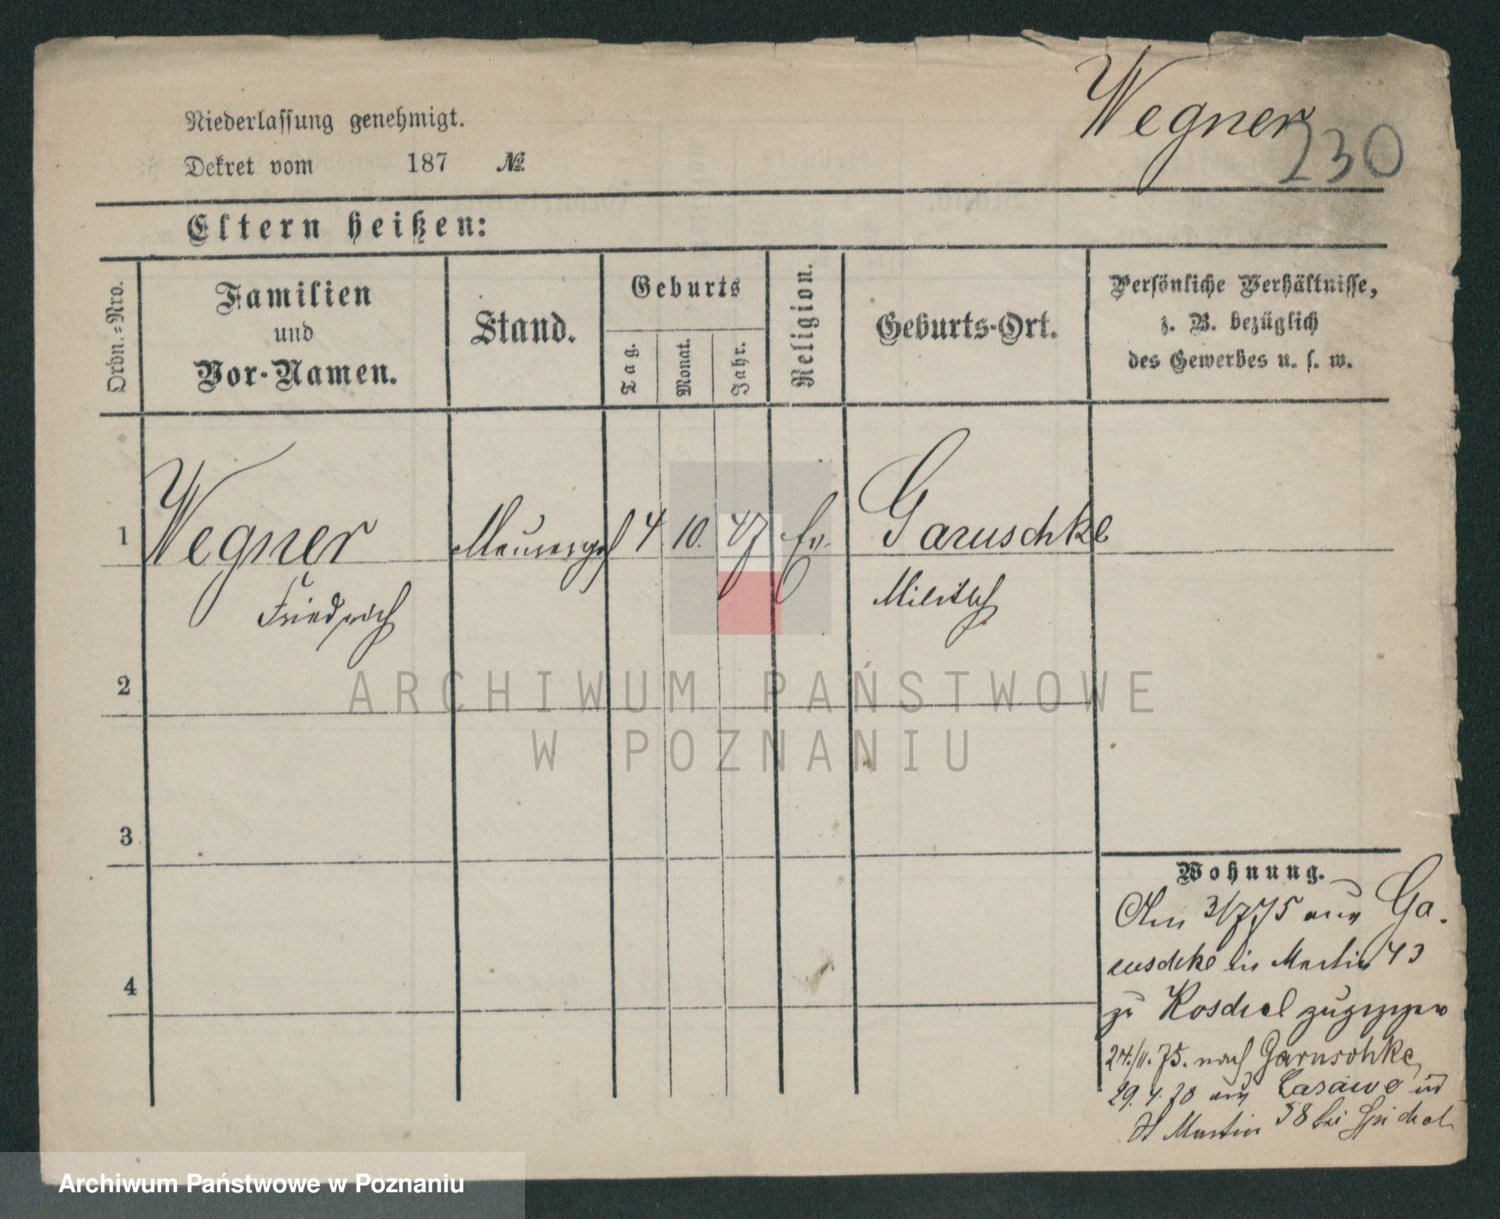 Wegner
230
Niederlassung genehmigt.
Dekret vom 187 №
Eltern heißen:
Ordn.-Nro.
Familien
und
Vor-Namen.
Stand.
Geburts
Tag.
Monat.
Jahr.
Religion.
Geburts-Ort.
Persönliche Verhältnisse,
z. B. bezüglich
des Gewerbes u. s. w.
1 Wegner Maurerges 4 10. 47 Ev. Garuschke
Friedrich Militsch
2
ARCHIWUM PAŃSTWOWE
W POZNANIU
3
Wohnung.
Am 3/7 75 aus Ga-
ruschke in Martin 43
zu Koschel zugezogen
4
24./11. 75. nach Garuschke
29. 4. 78 aus in
St Martin 38 bei
Archiwum Państwowe w Poznaniu